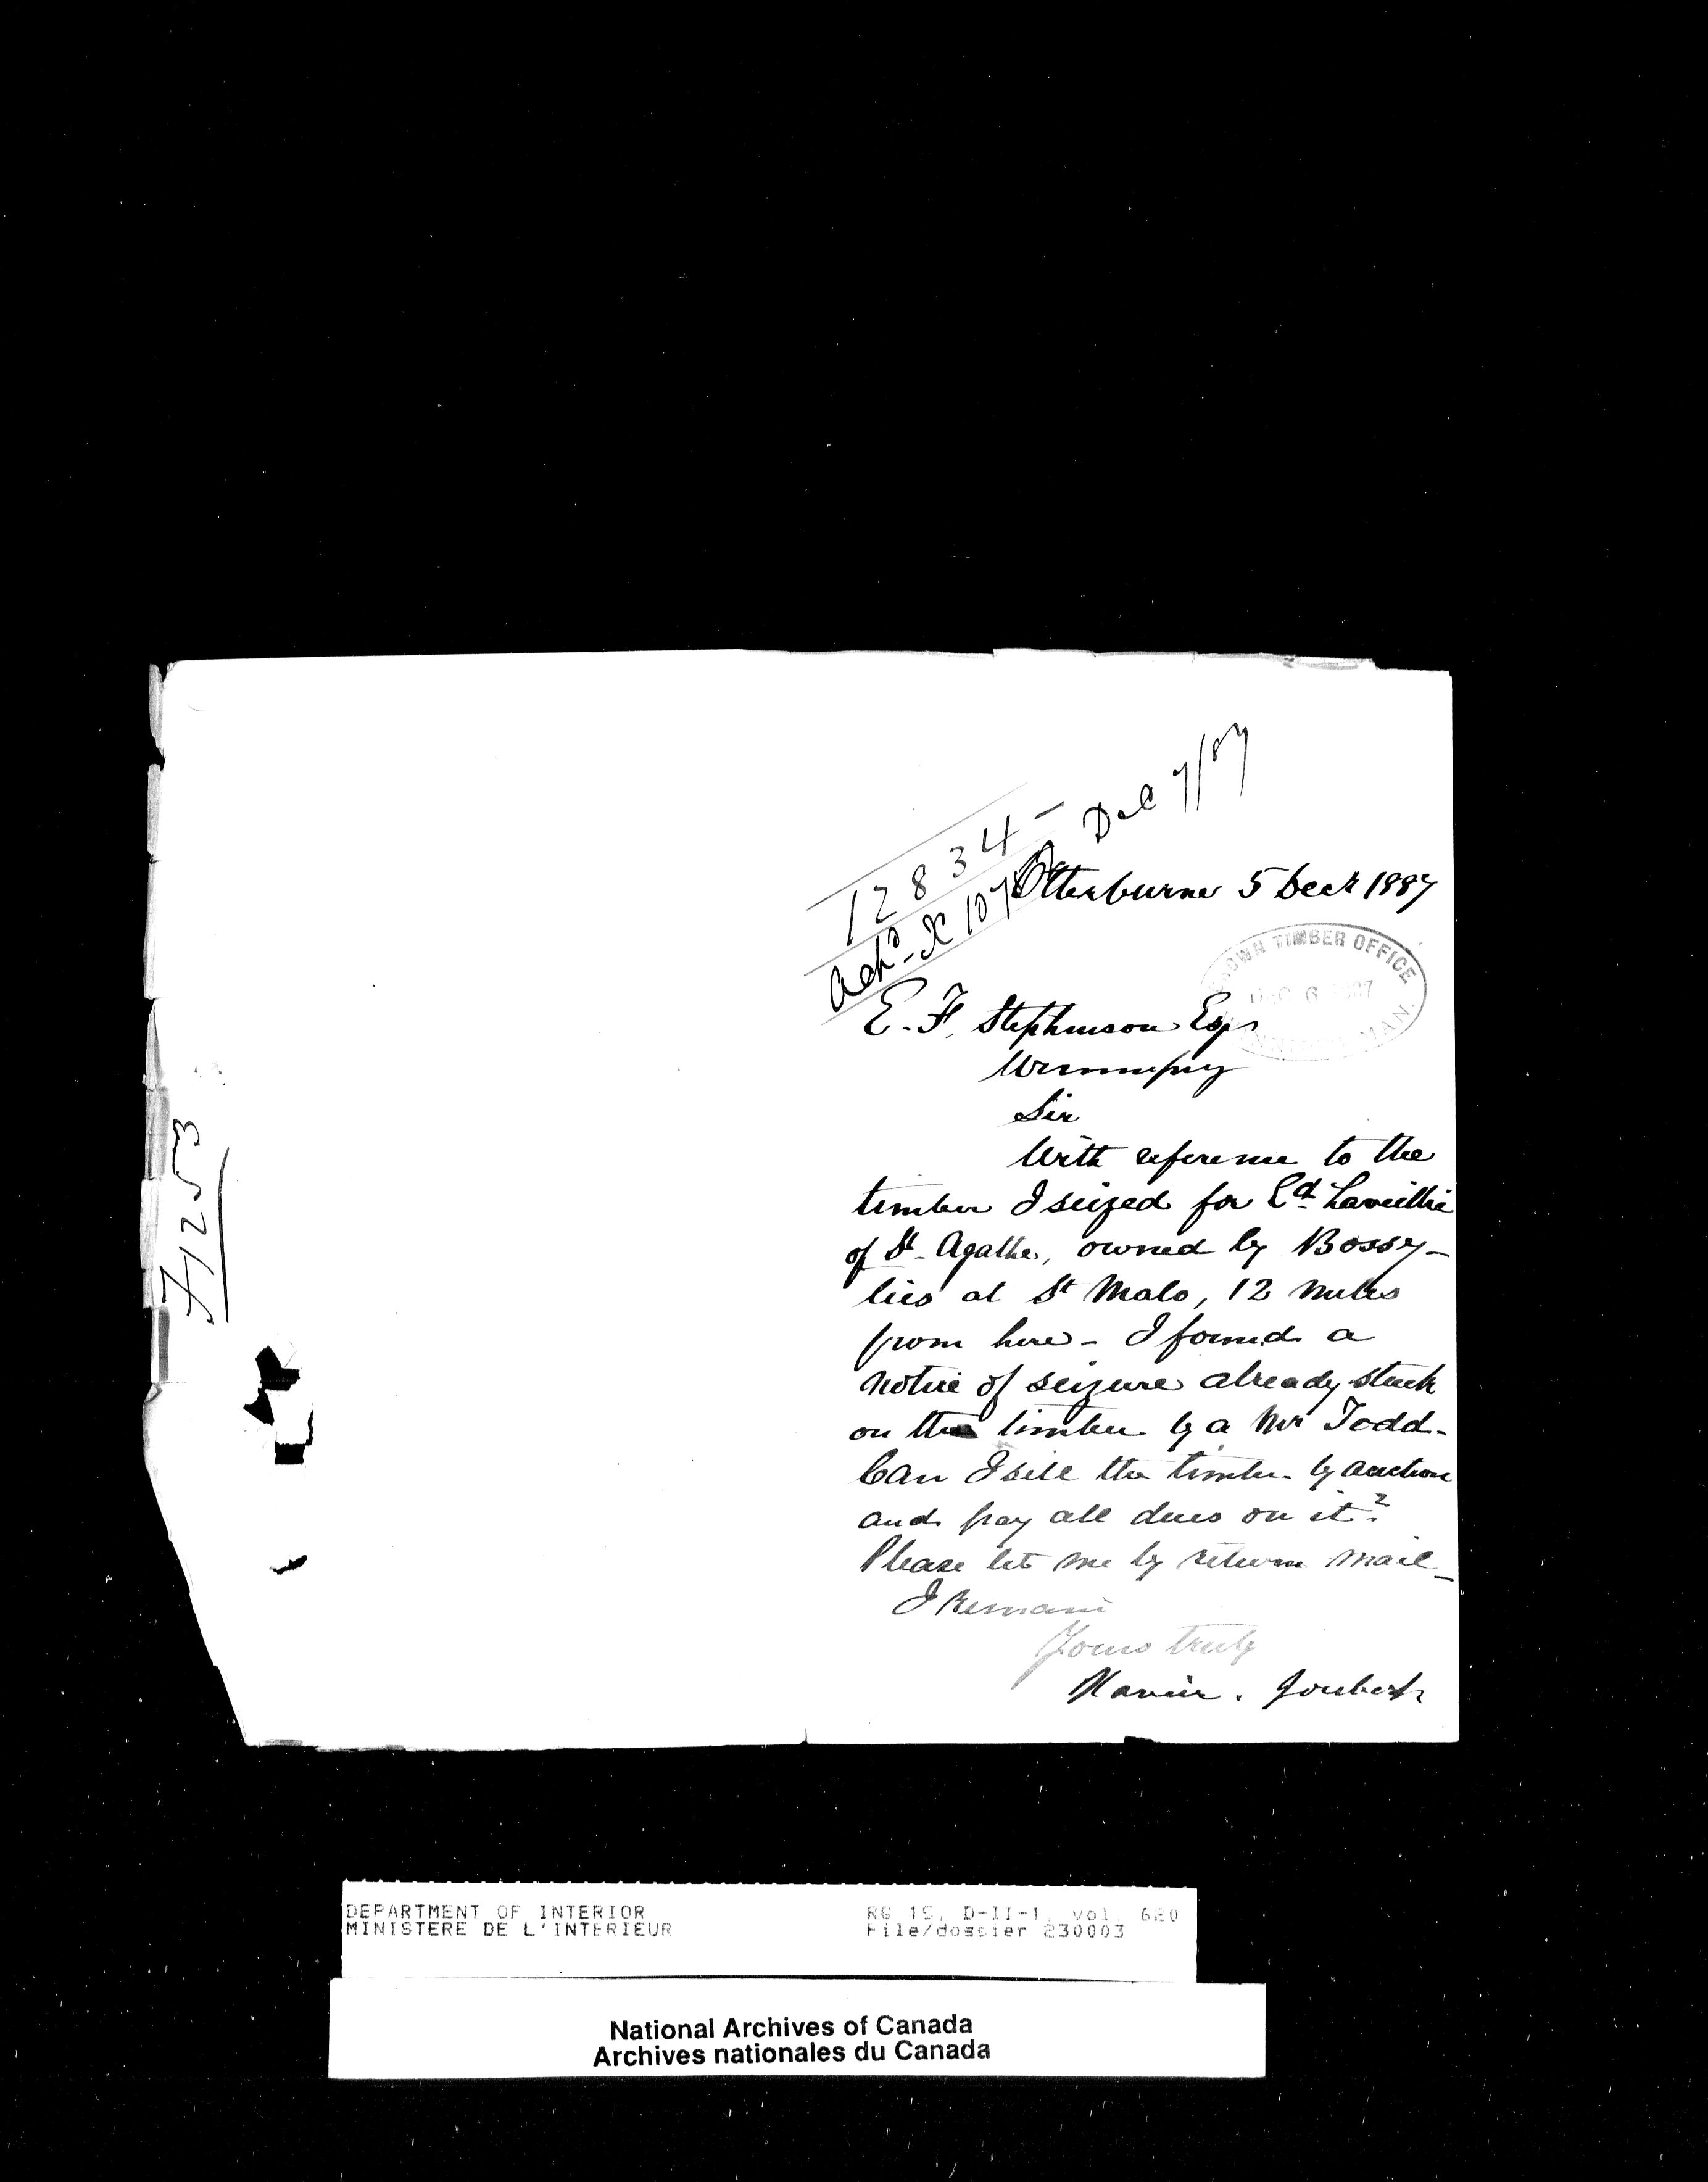 12834 -
Dec 7/87
Ack^d - K 107
Otterburne 5 Decr 1887
CROWN TIMBER OFFICE
DEC 6 1887
WINNIPEG MAN.
E. F. Stephenson Esqr
Winnipeg
Sir
With reference to the
timber I seized for Ed. Laveillie
of St. Agathe, owned by Bossy -
lies at St Malo, 12 miles
from here - I found a
notice of seizure already stuck
on the timber by a Mr Todd -
Can I sell the timber by auction
and pay all dues on it?
Please let me by return mail -
I Remain
Yours truly
Xavier. Joubert
71253
DEPARTMENT OF INTERIOR
MINISTERE DE L'INTERIEUR
RG 15, D-II-1, vol 620
File/dossier 230003
National Archives of Canada
Archives nationales du Canada